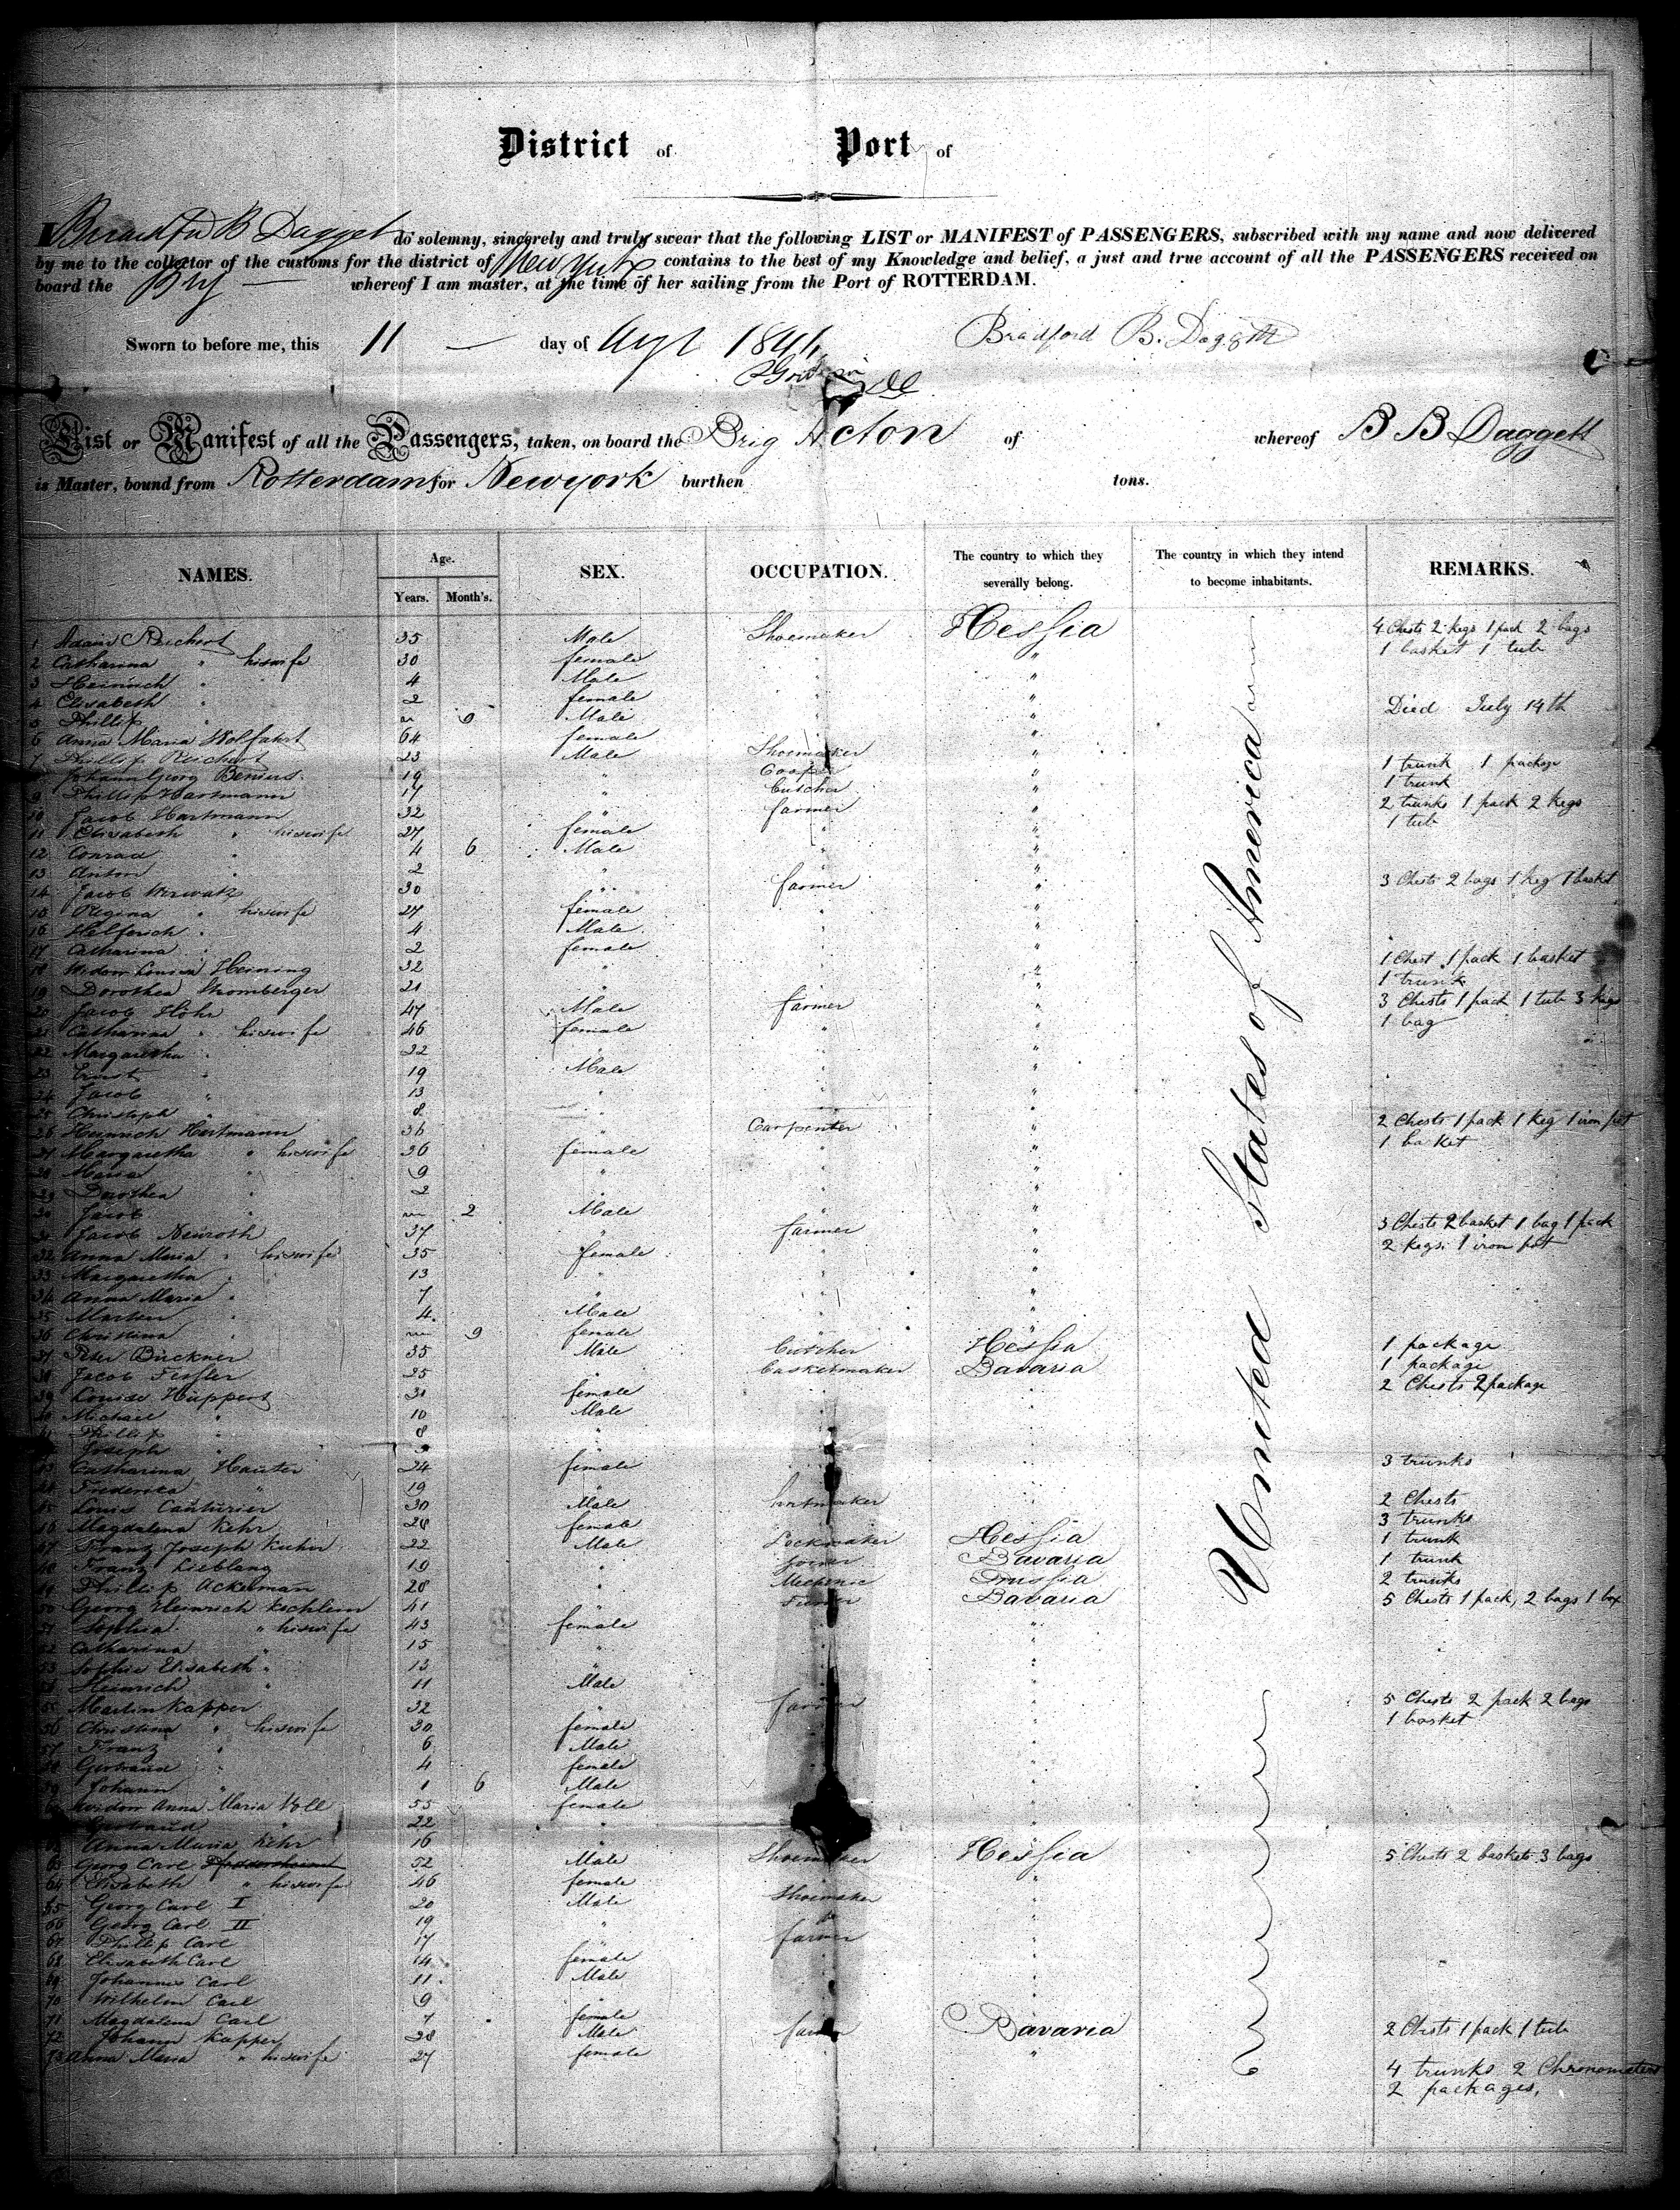 District of Port of
I Bradford B Dagget do solemny, sincerely and truly swear that the following LIST or MANIFEST of PASSENGERS, subscribed with my name and now delivered
by me to the collector of the customs for the district of New York contains to the best of my Knowledge and belief, a just and true account of all the PASSENGERS received on
board the Brig whereof I am master, at the time of her sailing from the Port of ROTTERDAM.
Sworn to before me, this 11 day of Augt 184 Bradford B. Daggett
List or Manifest of all the Passengers, taken, on board the Brig Acton of whereof B B Daggett
is Master, bound from Rotterdam for Newyork burthen tons.
NAMES. Age. Years. Month's. SEX. OCCUPATION. The country to which they severally belong. The country in which they intend to become inhabitants. REMARKS.
United States of America
1 Adam Reichert 35 Male Shoemaker Hessia 4 Chests 2 kegs 1 pack 2 bags
2 Catharina " his wife 30 female " " 1 basket 1 tub
3 Heinrich " 4 Male " "
4 Elisabeth " 2 female " "
5 Phillip " 9 Male " " Died July 14th
6 Anna Maria Wolfahrt 64 female "
7 Phillip Reichert 23 Male Shoemaker " 1 trunk 1 package
8 Johann Georg Benius 19 " Cooper " 1 trunk
9 Phillip Hartmann 17 " Butcher "
10 Jacob Hartmann 32 " farmer " 2 trunks 1 pack 2 kegs
11 Elisabeth " his wife 27 female " " 1 tub
12 Conrad " 4 6 Male " "
13 Anton " 2 " "
14 Jacob 30 " farmer " 3 Chests 2 bags 1 keg 1 basket
15 Regina " his wife 27 female " "
16 Helferich " 4 Male " "
17 Catharina " 2 female " "
18 Widow Louisa Heining 32 " " 1 Chest 1 pack 1 basket
19 Dorothea 21 " " 1 trunk
20 Jacob Höhn 47 Male farmer " 3 Chests 1 pack 1 tub 3 kegs
21 Catharina " his wife 46 female " " 1 bag
22 Margaretha " 22 " "
23 Ernst " 19 Male "
24 Jacob " 13 " "
25 Christoph " 8 " "
26 Heinrich Hartmann 36 " Carpenter " 2 Chests 1 pack 1 keg 1 iron pot
27 Margaretha " his wife 36 female " " 1 basket
28 Maria " 9 " "
29 Dorothea " 2 " "
30 Jacob " 2 Male "
31 Jacob Neuroth 37 " farmer " 3 Chests 2 basket 1 bag 1 pack
32 Anna Maria " his wife 35 female " " 2 kegs 1 iron pot
33 Margaretha " 13 " "
34 Anna Maria " 7 " "
35 Martin " 4 Male "
36 Christina " 9 female "
37 Peter Bückner 35 Male Butcher Hessia 1 package
38 Jacob Fessler 25 " basketmaker Bavaria 1 package
39 Louise Huppert 31 female " 2 Chests 2 package
40 Michael " 10 Male "
41 Phillip " 8 " "
42 Joseph "
43 Catharina Hauter 24 female " 3 trunks
44 Frederica " 19 "
45 Louis Cauturier 30 Male " 2 Chests
46 Magdalena Kehr 28 female " 3 trunks
47 Franz Joseph Kuhn 22 Male Lockmaker Hessia 1 trunk
48 Franz Lieblang 19 " Joiner Bavaria 1 trunk
49 Phillip Ackerman 28 " Mechanic Prussia 2 trunks
50 Georg Heinrich Kochlein 41 " Bavaria 5 Chests 1 pack, 2 bags 1 box
51 Sophia " his wife 43 female "
52 Catharina " 15 " "
53 Sophie Elisabeth " 13 " "
54 Heinrich " 11 Male "
55 Martin Kapper 32 " farmer " 5 Chests 2 pack 2 bags
56 Christina " his wife 30 female " 1 basket
57 Franz " 6 Male "
58 Gertraud " 4 female "
59 Johann " 1 6 Male "
60 Widow Anna Maria Noll 55 female "
Gertraud " 22 " "
62 Anna Maria Kehr 16 "
63 Georg Carl 52 Male Shoemaker Hessia 5 Chests 2 baskets 3 bags
64 Elisabeth " his wife 46 female "
65 Georg Carl I 20 Male Shoemaker "
66 Georg Carl II 19 " "
67 Phillip Carl 17 " farmer "
68 Elisabeth Carl 14 female "
69 Johannes Carl 11 Male "
70 Wilhelm Carl 9 " "
71 Magdalena Carl 7 female
72 Johann Kapper 28 Male farmer Bavaria 2 Chests 1 pack 1 tub
73 Anna Maria " his wife 27 female "
4 trunks 2 Chronometers
2 packages,